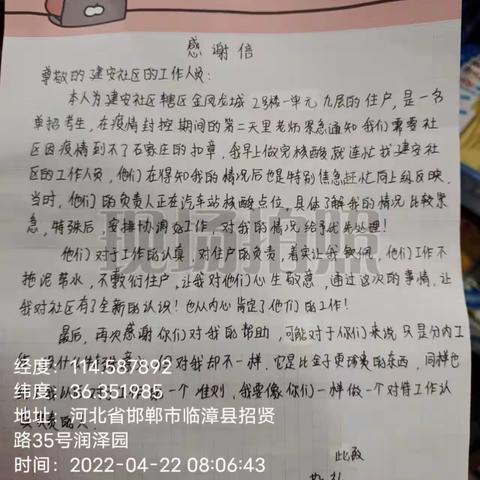 感谢信
尊敬的建安社区的工作人员:
本人为建安社区辖区金凤龙城2号楼一单元九层的住户,是一名
单招考生,在疫情封控期间的第二天里老师紧急通知我们需要社
区因疫情到不了石家庄的扣章,我早上做完核酸就连忙找建安社区
的工作人员,他们在得知我的情况后也是特别焦急赶忙向上级反映。
当时,他们的负责人正在汽车站核酸点位,具体了解我的情况比较紧
急,特殊后,安排协调完工作,对我的情况给予优先处理!
他们对于工作的认真,对住户的负责,着实让我敬佩,他们工作不
拖泥带水,不敷衍住户,让我对他们心生敬意,通过这次的事情,让
我对社区有了全新的认识!也从内心肯定了他们的工作!
最后,再次感谢你们对我的帮助,可能对于你们来说只是分内工
对我却不一样,它是比金子更珍贵的东西,同样也
一个准则,我要像你们一样做一个对待工作认
此致
敬礼
现场拍照
经度:114.587892
纬度:36.351985
地址:河北省邯郸市临漳县招贤
路35号润泽园
时间:2022-04-22 08:06:43